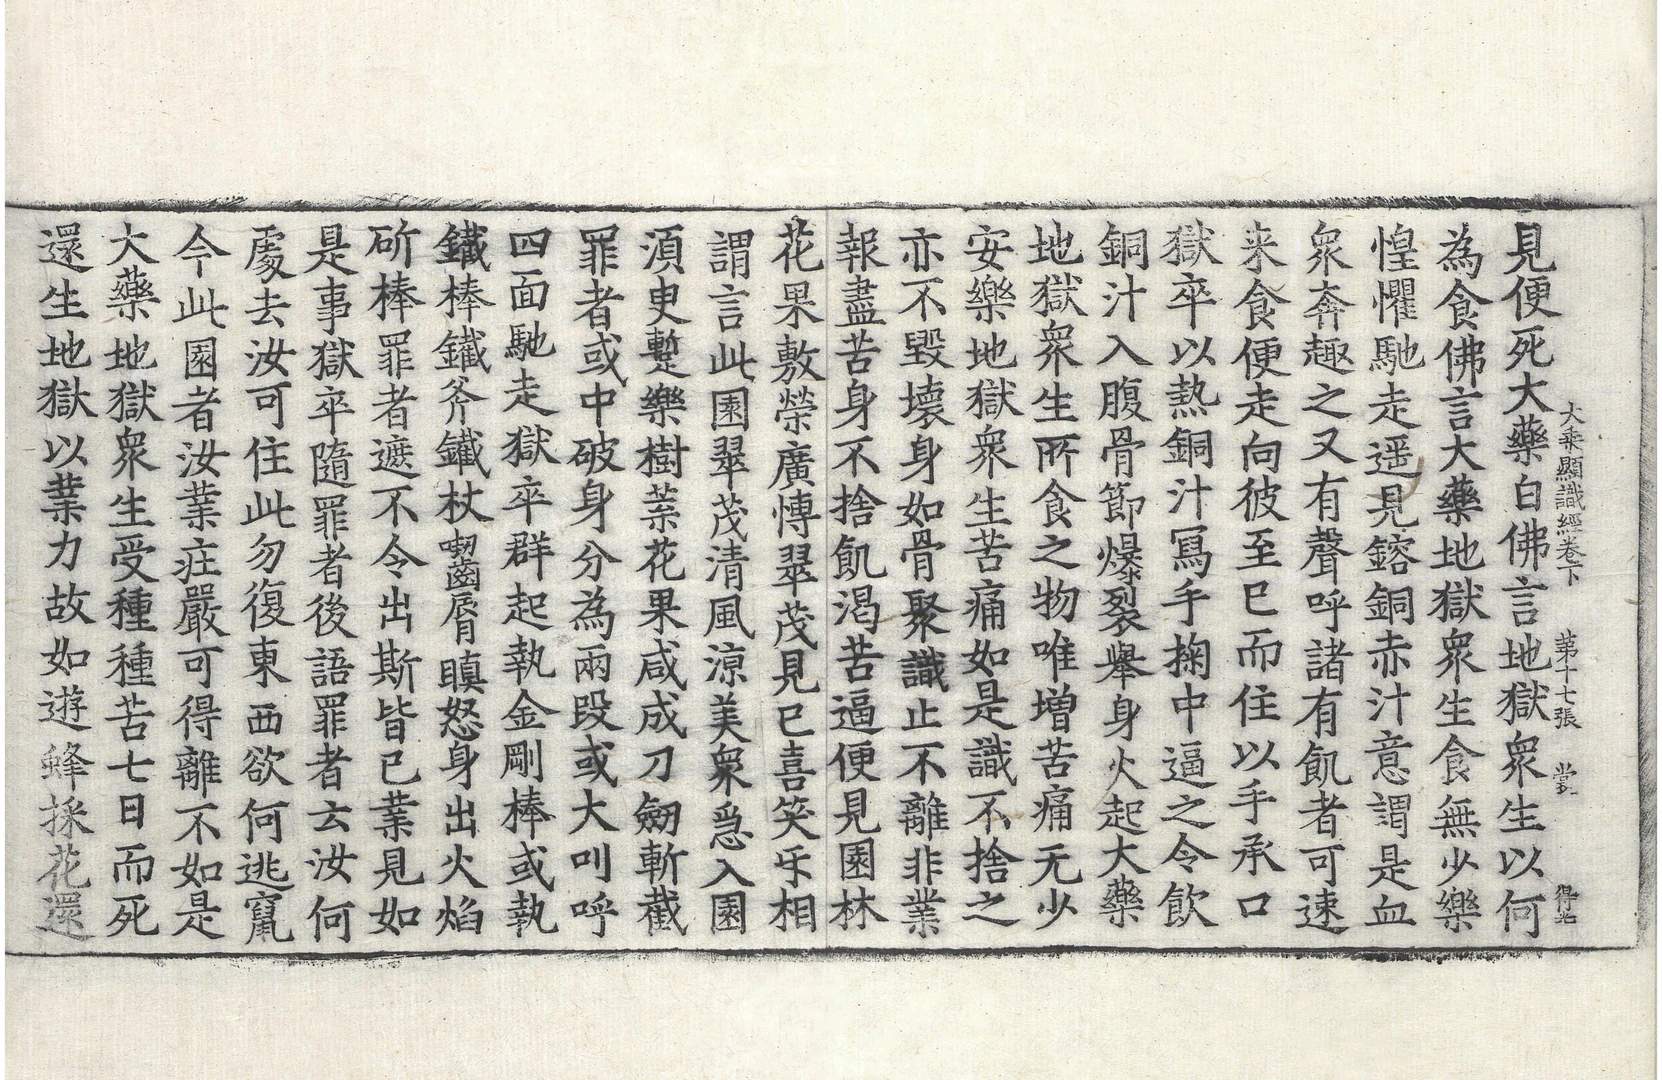 大乘顯識經卷下　第十七張　當　得北
見便死大藥白佛言地獄衆生以何
為食佛言大藥地獄衆生食無少樂
惶懼馳走遥見鎔銅赤汁意謂是血
衆奔趣之又有聲呼諸有飢者可速
来食便走向彼至已而住以手承口
獄卒以熱銅汁寫手掬中逼之令飲
銅汁入腹骨節爆裂舉身火起大藥
地獄衆生所食之物唯增苦痛无少
安樂地獄衆生苦痛如是識不捨之
亦不毀壞身如骨聚識止不離非業
報盡苦身不捨飢渴苦逼便見園林
花果敷榮廣愽翠茂見已喜笑乐相
謂言此園翠茂清風涼美衆急入園
湏臾蹔樂樹葉花果咸成刀劒斬截
罪者或中破身分為兩段或大叫呼
四面馳走獄卒群起執金剛棒或執
鐵棒鐵斧鐵杖喫齒脣瞋怒身出火焰
斫棒罪者遮不令出斯皆已業見如
是事獄卒隨罪者後語罪者云汝何
處去汝可住此勿復東西欲何逃竄
今此園者汝業庄嚴可得離不如是
大藥地獄衆生受種種苦七日而死
還生地獄以業力故如遊蜂採花還